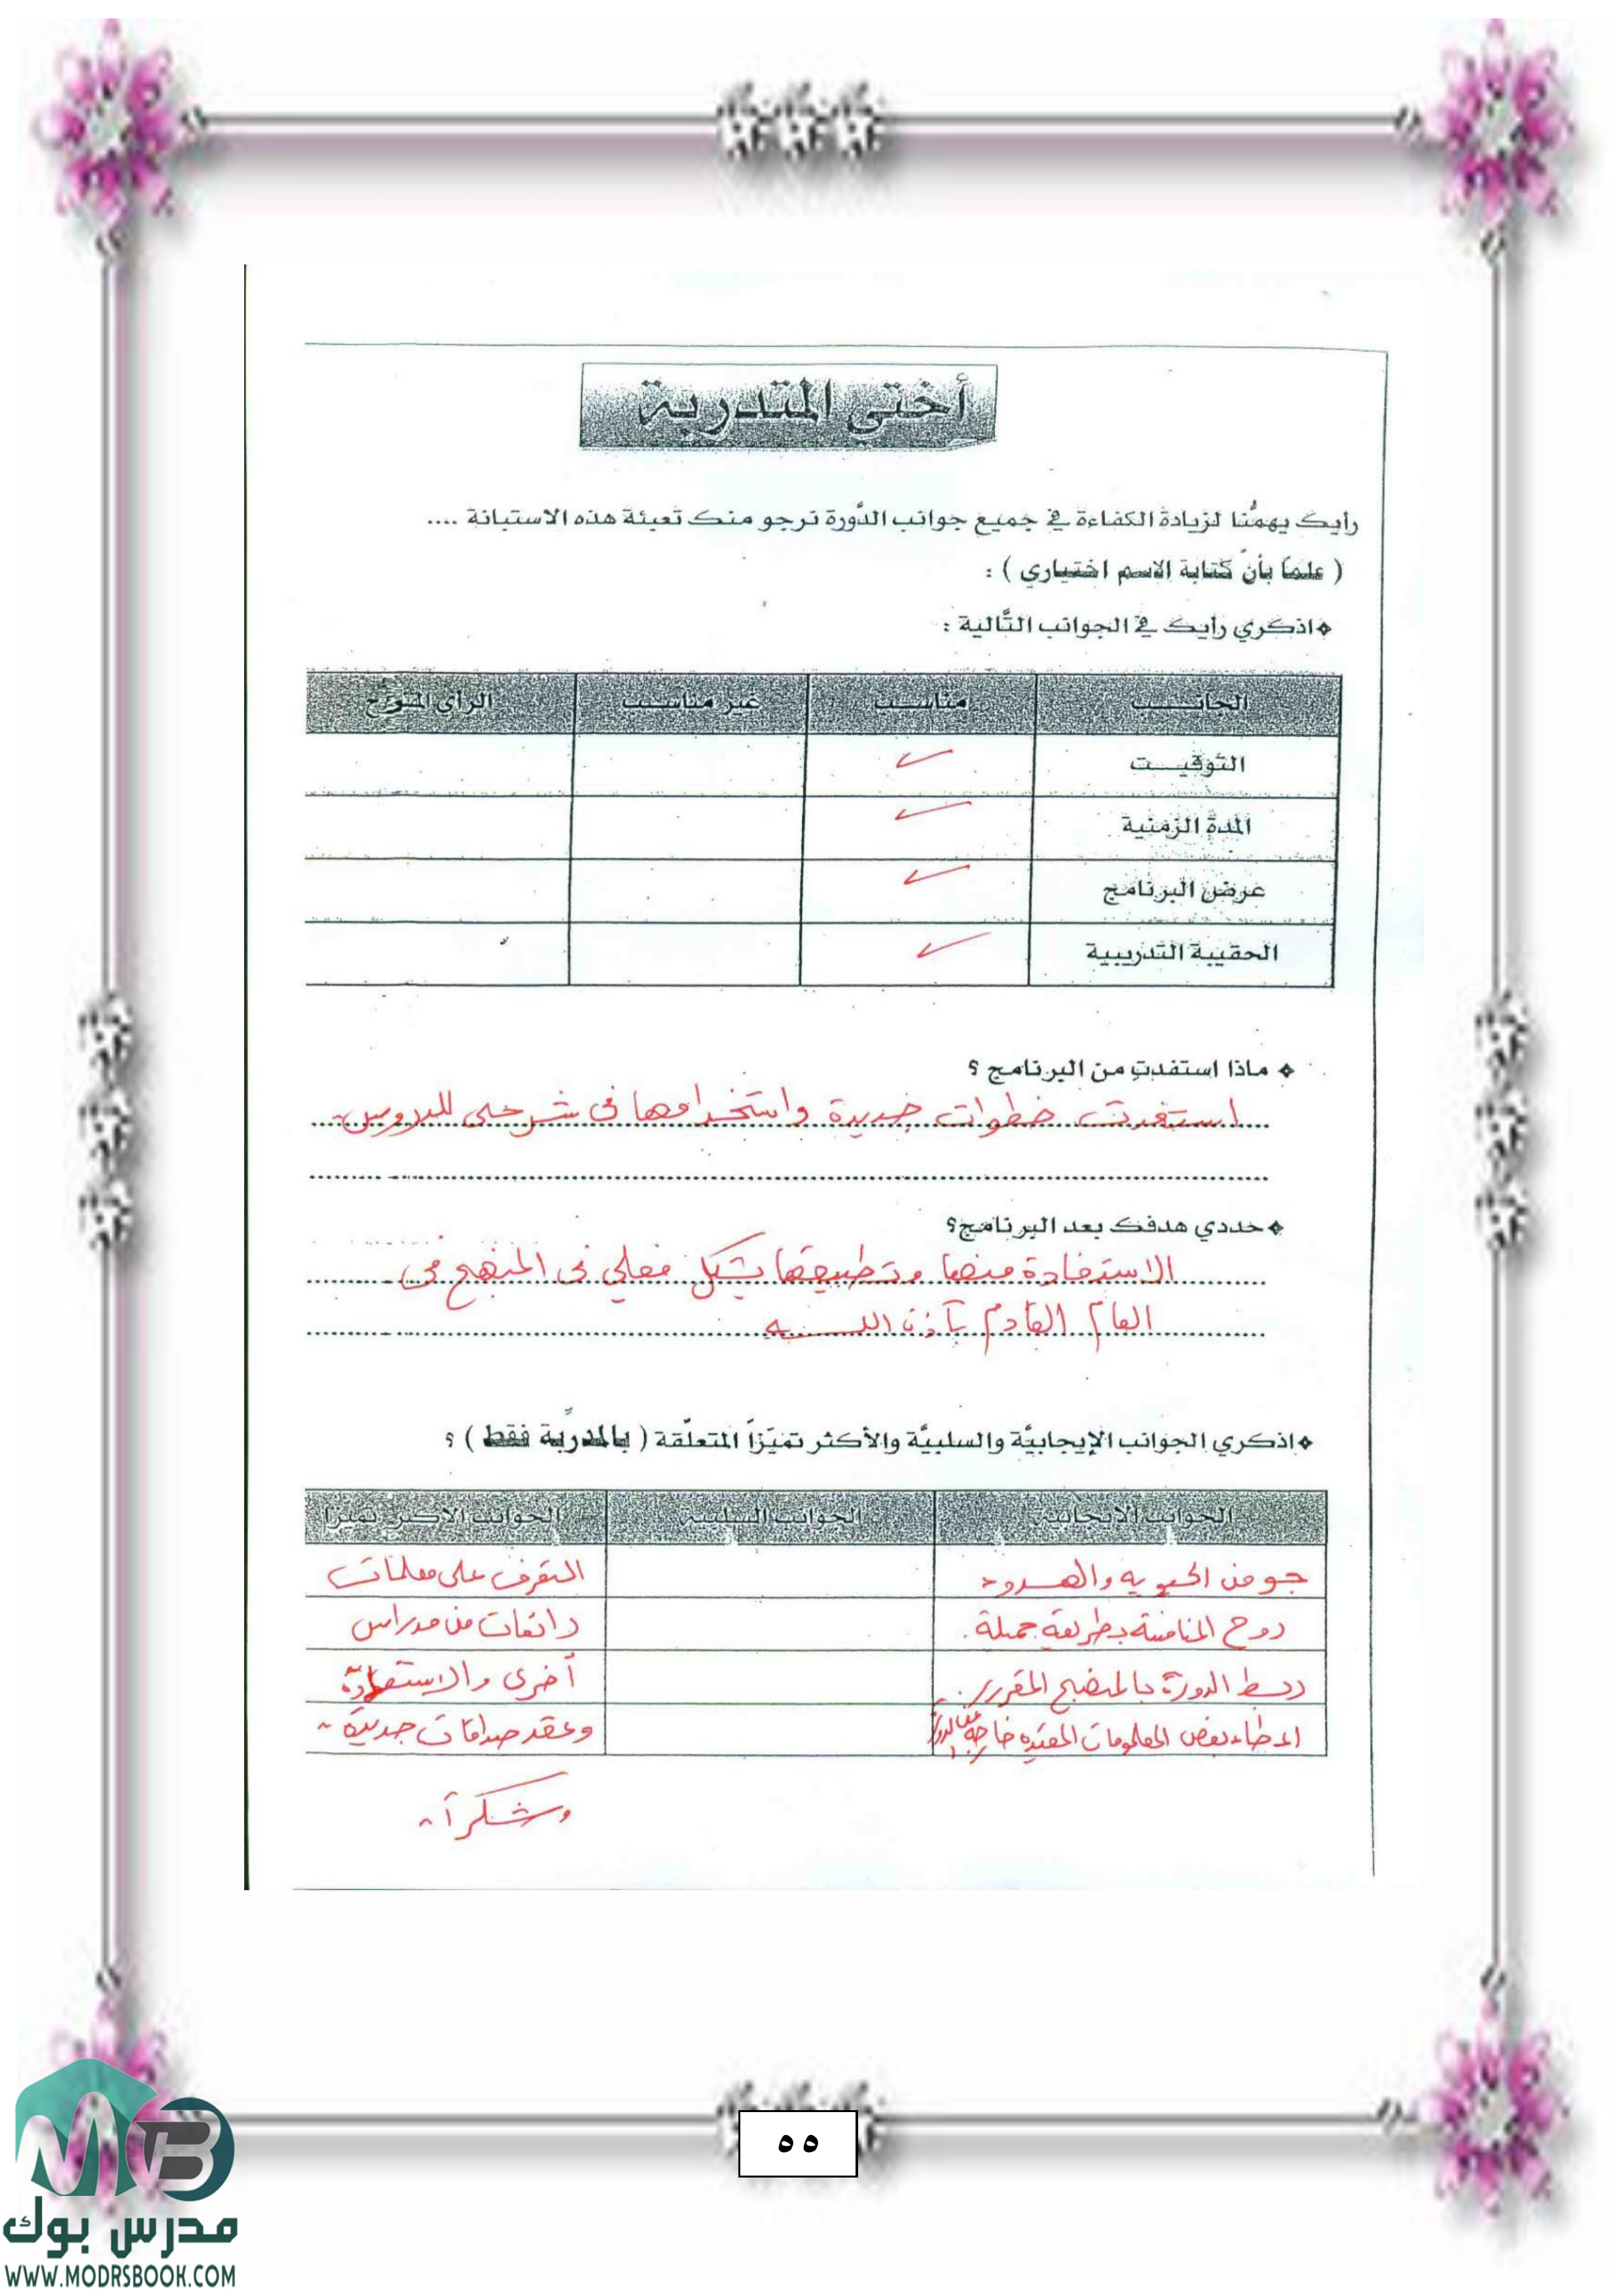 أختي المتدربة
رأيك يهمُّنا لزيادة الكفاءة في جميع جوانب الدَّورة نرجو منك تعبئة هذه الاستبانة ....
( علماً بأنّ كتابة الاسم اختياري ) :
اذكري رأيك في الجوانب التَّالية :
الجانب مناسب غير مناسب الرأي المقترح
التوقيت ✓
المدة الزمنية ✓
عرض البرنامج ✓
الحقيبة التدريبية ✓
ماذا استفدتِ من البرنامج ؟
استفدت خطوات جديدة واستخدامها في شرحي للدروس
حددي هدفك بعد البرنامج؟
الاستفادة منها وتطبيقها بشكل فعلي في المنهج في
العام القادم بآذن الله
اذكري الجوانب الإيجابيَّة والسلبيَّة والأكثر تميّزاً المتعلّقة ( بالمدرِّبة فقط ) ؟
الجوانب الإيجابية الجوانب السلبية الجوانب الأكثر تميزا
جو من الحيويه والهدوء التعرف على معلمات
روح المنافسة بطريقة جميلة . رائعات من مدراس
ربط الدورة بالمنهج المقرر . أخرى والاستفادة
اعطاء بعض المعلومات المفيده خارجة وعقد صداقات جديدة
وشكراً
٥٥
مدرس بوك
WWW.MODRSBOOK.COM